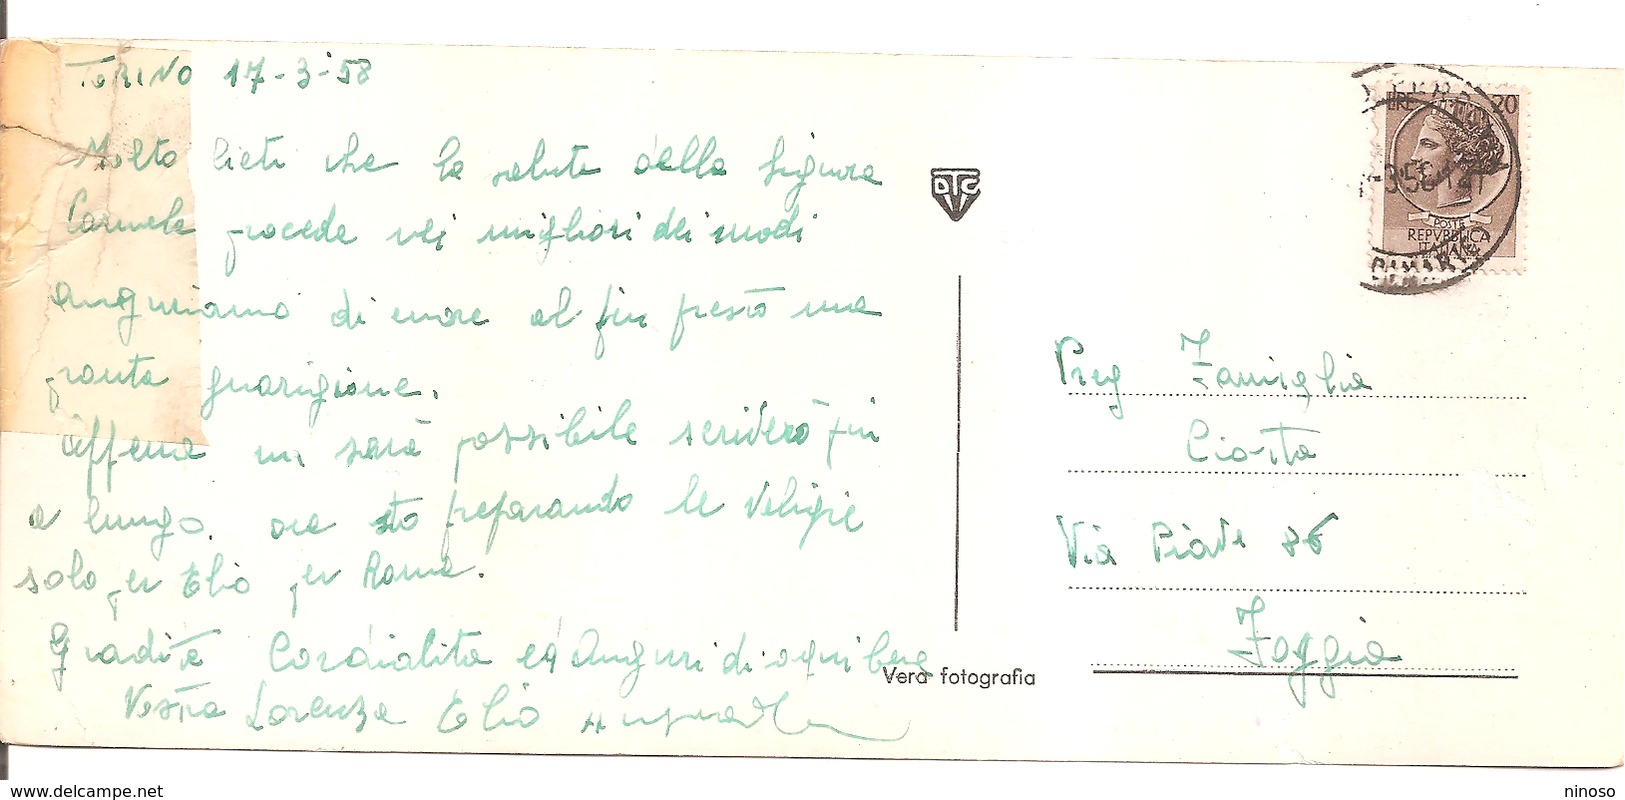 TORINO 17-3-58
Molto lieti che la salute della Signora
Carmela procede nei migliori dei modi
auguriamo di cuore al fin presto una
pronta guarigione.
Appena mi sarà possibile scriverò più
a lungo. ora sto preparando le valigie
solo per Elio per Roma.
Gradite Cordialità ed Auguri di ogni bene
Vostra Lorenza Elio
DTC
Vera fotografia
LIRE 20
POSTE
REPVBBLICA
ITALIANA
Preg Famiglia
Ciotta
Via Piave 86
Foggia
www.delcampe.net
ninoso